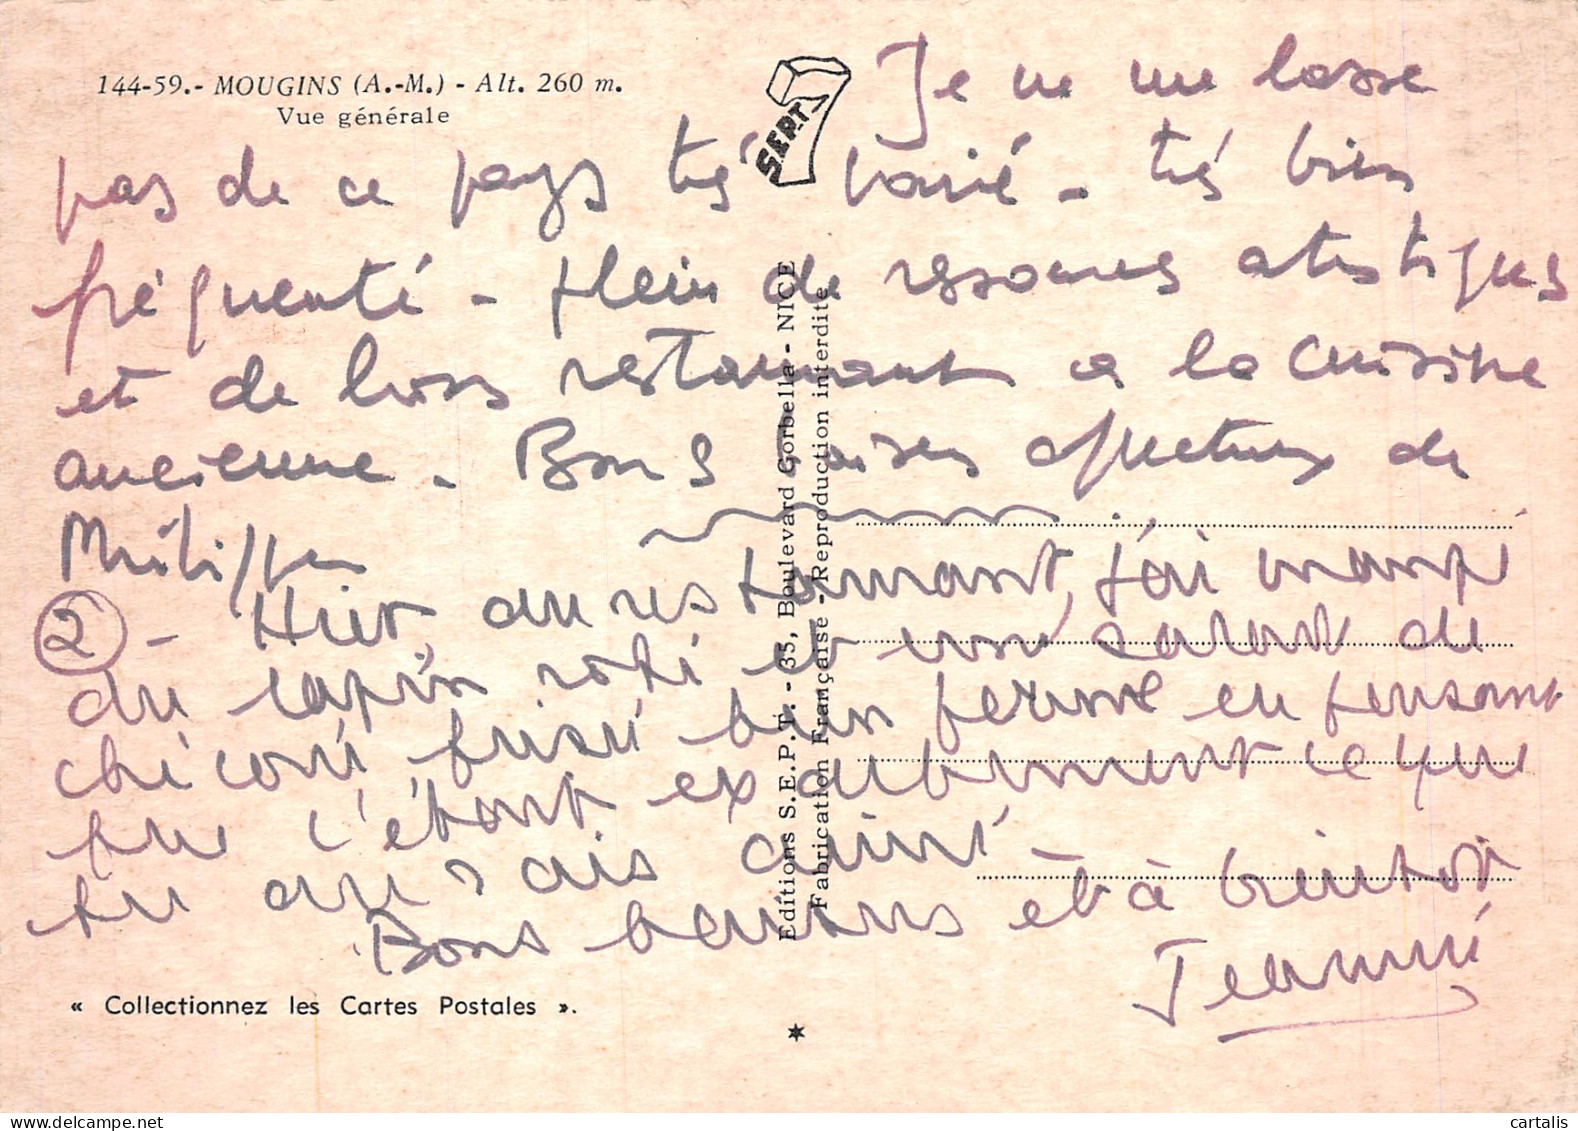 144-59.- MOUGINS (A.-M.) - Alt. 260 m.
Vue générale
SEPT
Je ne me lasse
pas de ce pays très varié - très bien
fréquenté - plein de ressources artistiques
et de bons restaurants à la cuisine
ancienne. Bons baisers affectueux de
②- Hier, au restaurant, j'ai mangé
du lapin rôti et une salade de
chicorée frisée bien ferme en pensant
que c'était exactement ce que
tu aurais aimé.
Bons baisers et à bientôt
Editions S.E.P.T. - 35, Boulevard Gorbella - NICE
Fabrication Française - Reproduction interdite
« Collectionnez les Cartes Postales ».
cartalis